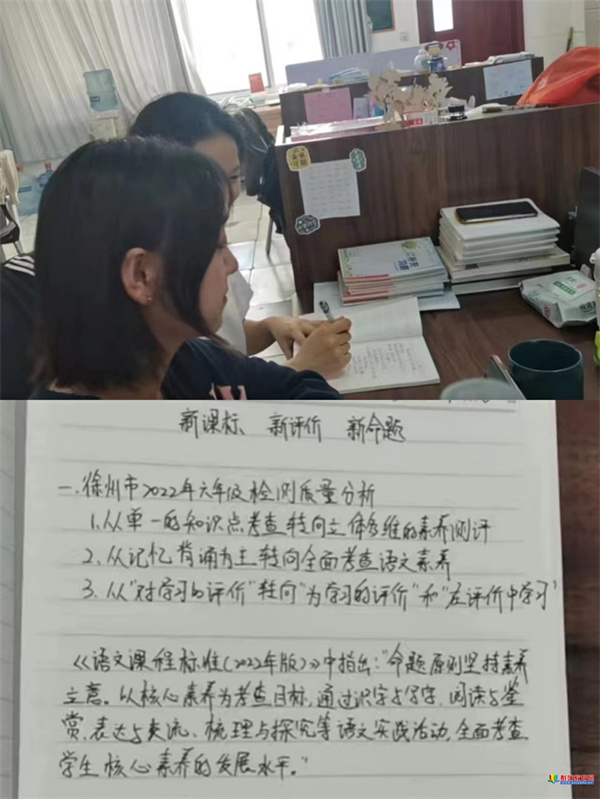 新课标、新评价 新命题
一.徐州市2022年六年级检测质量分析
1.从单一的知识点考查转向立体多维的素养测评
2.从记忆背诵为主转向全面考查语文素养
3.从“对学习的评价”转向“为学习的评价”和“在评价中学习”
《语文课程标准(2022年版)》中指出:“命题原则坚持素养
立意。以核心素养为考查目标,通过识字与写字、阅读与鉴
赏、表达与交流、梳理与探究等语文实践活动,全面考查
学生核心素养的发展水平。”